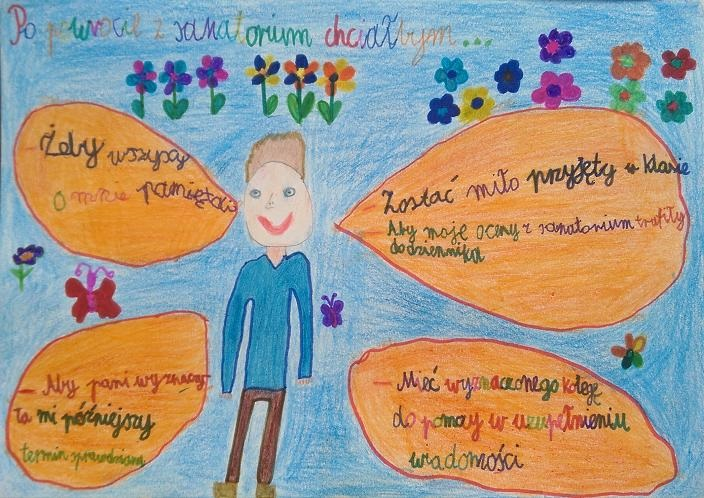 Po powrocie z sanatorium chciałbym...
- Żeby wszyscy
o mnie pamiętali
- Zostać miło przyjęty w klasie
Aby moje oceny z sanatorium trafiły
do dziennika
- Aby pani wyznaczy-
ła mi późniejszy
termin sprawdzianu
- Mieć wyznaczonego kolegę
do pomocy w uzupełnieniu
wiadomości